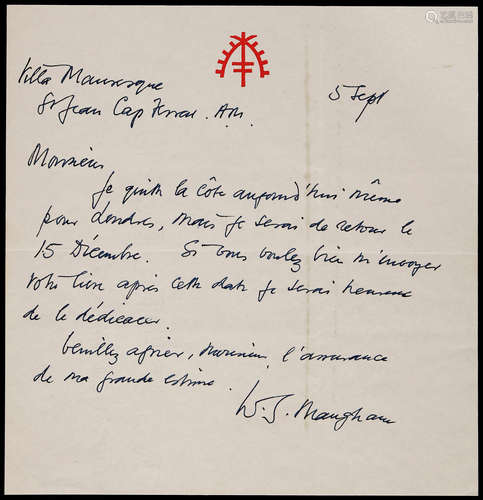 Villa Mauresque
St Jean Cap Ferrat. A.M.
5 Sept
Monsieur
Je quitte la côte aujourd'hui même
pour Londres, mais je serai de retour le
15 Décembre. Si vous voulez bien m'envoyer
votre livre après cette date je serai heureux
de le dédicacer.
Veuillez agréer, Monsieur, l'assurance
de ma grande estime.
W. S. Maugham